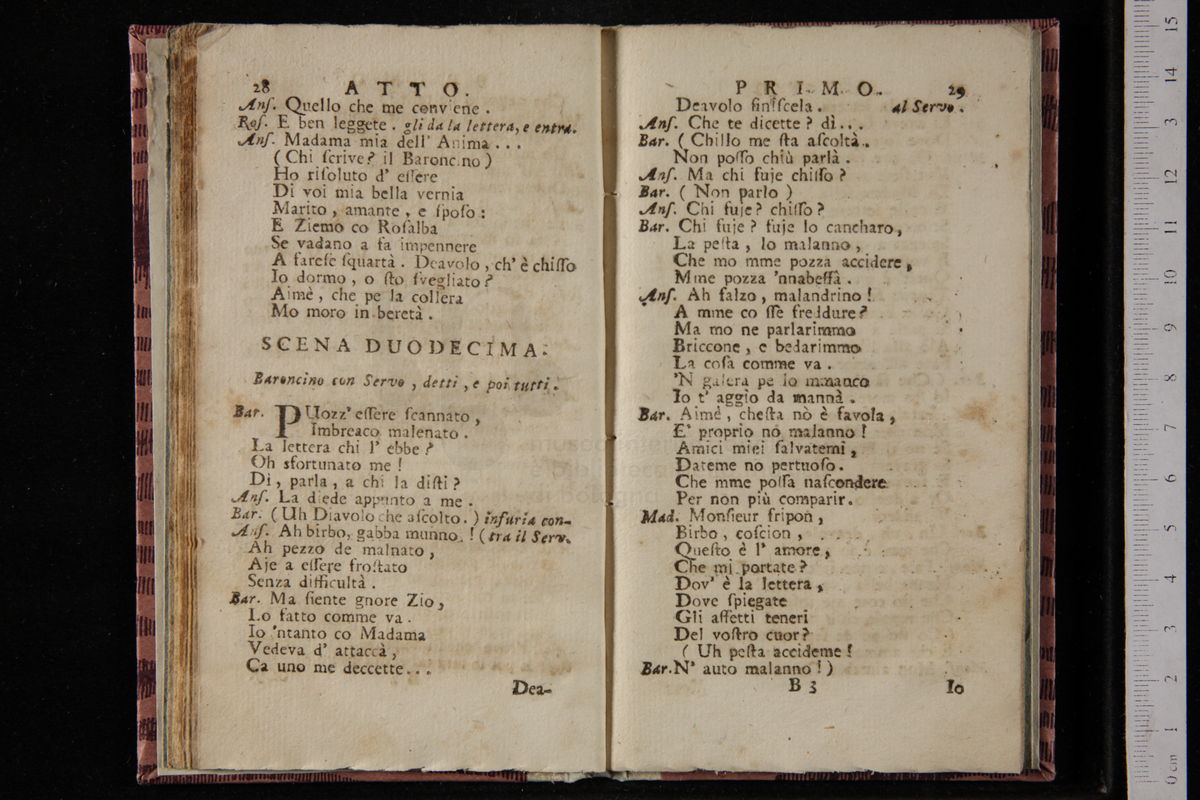 28 ATTO.
Anſ. Quello che me conviene.
Roſ. E ben leggete. gli da la lettera, e entra.
Anſ. Madama mia dell' Anima...
(Chi ſcrive? il Baroncino)
Ho riſoluto d' eſſere
Di voi mia bella vernia
Marito, amante, e ſpoſo:
E Ziemo co Roſalba
Se vadano a fa impennere
A fareſe ſquartà. Deavolo, ch' è chiſſo
Io dormo, o ſto ſvegliato?
Aimè, che pe la collera
Mo moro in beretà.
SCENA DUODECIMA.
Baroncino con Servo, detti, e poi tutti.
Bar. PUozz' eſſere ſcannato,
Imbreaco malenato.
La lettera chi l' ebbe?
Oh sfortunato me!
Di, parla, a chi la diſti?
Anſ. La diede appunto a me.
Bar. (Uh Diavolo che aſcolto.) infuria con-
Anſ. Ah birbo, gabba munno.! (tra il Serv.
Ah pezzo de malnato,
Aje a eſſere froſtato
Senza difficultà.
Bar. Ma ſiente gnore Zio,
Lo fatto comme va.
Io 'ntanto co Madama
Vedeva d' attaccà,
Ca uno me deccette...
Dea-
PRIMO. 29
Deavolo finiſcela. al Servo.
Anſ. Che te dicette? dì...
Bar. (Chillo me ſta aſcoltà.
Non poſſo chiù parlà.
Anſ. Ma chi fuje chiſſo?
Bar. (Non parlo)
Anſ. Chi fuje? chiſſo?
Bar. Chi fuje? fuje lo cancharo,
La peſta, lo malanno,
Che mo mme pozza accidere,
Mme pozza 'nnabeſſà.
Anſ. Ah falzo, malandrino!
A mme co ſſe freddure?
Ma mo ne parlarimmo
Briccone, e bedarimmo
La coſa comme va.
'N galera pe lo mmanco
Io t' aggio da mannà.
Bar. Aimè, cheſta nò è favola,
E' proprio no malanno!
Amici miei ſalvatemi,
Dateme no pertuoſo.
Che mme poſſa naſcondere
Per non più comparir.
Mad. Monſieur fripon,
Birbo, coſcion,
Queſto è l' amore,
Che mi portate?
Dov' è la lettera,
Dove ſpiegate
Gli affetti teneri
Del voſtro cuor?
(Uh peſta accideme!
Bar. N' auto malanno!)
B 3 Io